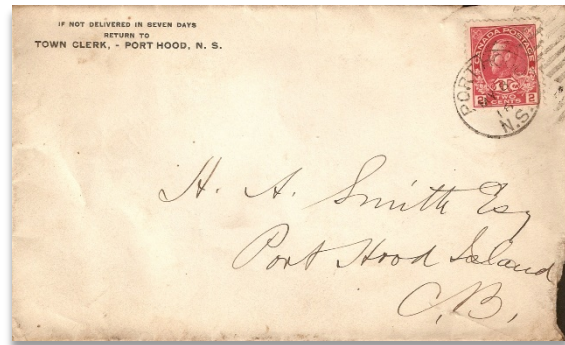 IF NOT DELIVERED IN SEVEN DAYS
RETURN TO
TOWN CLERK, - PORT HOOD, N. S.
CANADA POSTAGE
2 TWO CENTS 2
PORT
N.S.
H. A. Smith Esq
Port Hood Island
C.B.